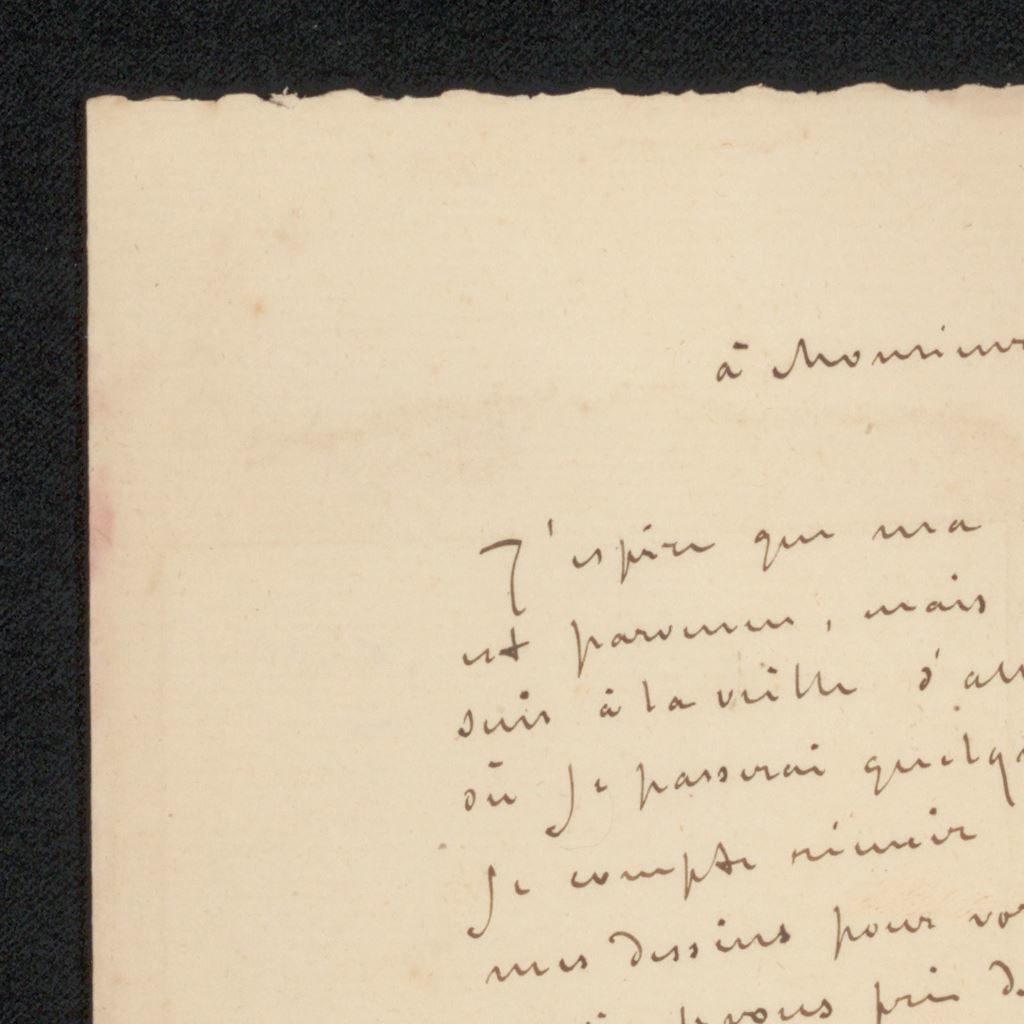 à Monsieur
J'espère que ma
est parvenue, mais
suis à la veille d'all
où Je passerai quelqu
Je compte réunir
mes dessins pour vo
je vous prie d